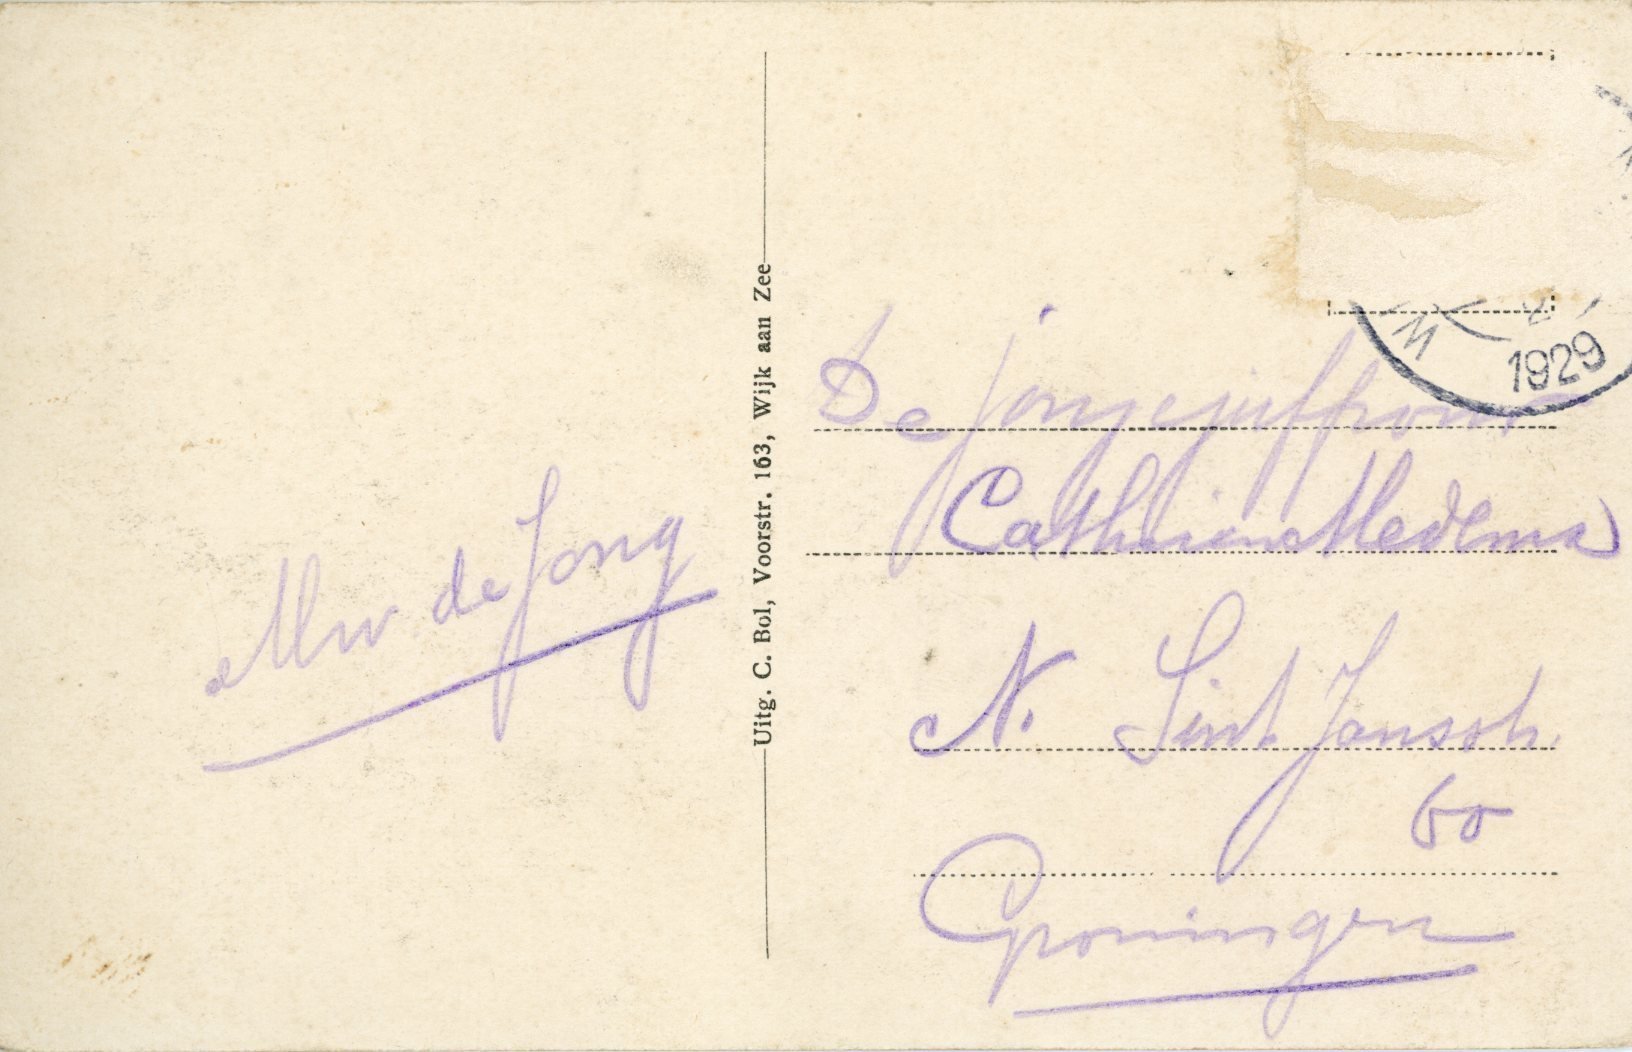 Mw de Jong
Uitg. C. Bol, Voorstr. 163, Wijk aan Zee
1929
De jongejuffrouw
Cathrien Medema
N. Sint Jansstr.
60
Groningen